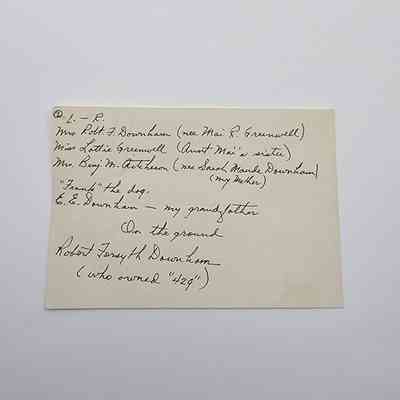 ② L. - R.
Mrs Robt F. Downham (nee Mai R. Greenwell)
Miss Lottie Greenwell (Aunt Mai's sister)
Mrs. Benj. M. Aitcheson (nee Sarah Maude Downham)
(my Mother)
"Frank" the dog.
E. E. Downham — my grandfather
On the ground
Robert Forsyth Downham
(who owned "429")